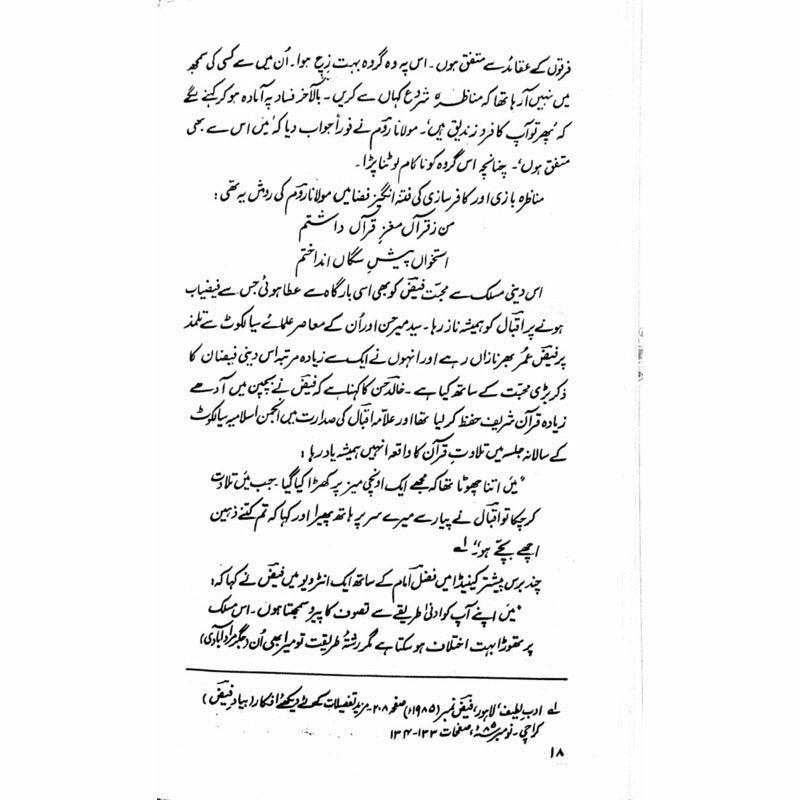 فرقوں کے عقائد سے متفق ہوں۔ اس پہ وہ گروہ بہت زچ ہوا۔ اُن میں سے کسی کی سمجھ
میں نہیں آرہا تھا کہ مناظرہ شروع کہاں سے کریں۔ بالآخر فساد پہ آمادہ ہو کر کہنے لگے
کہ پھر تو آپ کافر و زندیق ہیں‘۔ مولانا رومؔ نے فوراً جواب دیا کہ ’میں اس سے بھی
متفق ہوں‘۔ چنانچہ اس گروہ کو ناکام لوٹنا پڑا۔
مناظرہ بازی اور کافر سازی کی فتنہ انگیز فضا میں مولانا رومؔ کی روش یہ تھی:
من ز قرآں مغزِ قرآں داشتم
استخواں پیشِ سگاں انداختم
اس دینی مسلک سے محبت فیضؔ کو بھی اسی بارگاہ سے عطا ہوئی جس سے فیضیاب
ہونے پر اقبالؔ کو ہمیشہ ناز رہا۔ سید میر حسن اور اُن کے معاصر علمائے سیالکوٹ سے تلمذ
پر فیضؔ عمر بھر نازاں رہے اور انہوں نے ایک سے زیادہ مرتبہ اس دینی فیضان کا
ذکر بڑی محبت کے ساتھ کیا ہے۔ خالد حسن کا کہنا ہے کہ فیضؔ نے بچپن میں آدھے
زیادہ قرآن شریف حفظ کر لیا تھا اور علامہ اقبالؔ کی صدارت میں انجمن اسلامیہ سیالکوٹ
کے سالانہ جلسہ میں تلاوتِ قرآن کا واقعہ انہیں ہمیشہ یاد رہا:
”میں اتنا چھوٹا تھا کہ مجھے ایک اونچی میز پر کھڑا کیا گیا۔ جب میں تلاوت
کر چکا تو اقبالؔ نے پیار سے میرے سر پر ہاتھ پھیرا اور کہا کہ تم کتنے ذہین
اچھے بچے ہو۔“ ۱ے
چند برس پیشتر کینیڈا میں فضل امام کے ساتھ ایک انٹرویو میں فیضؔ نے کہا کہ:
”میں اپنے آپ کو ادنیٰ طریقے سے تصوف کا پیرو سمجھتا ہوں۔ اس مسلک
پر تھوڑا بہت اختلاف ہو سکتا ہے مگر رشتۂ طریقت تو میرا بھی اُن (جگر مراد آبادی)
۱ے ادبِ لطیف‘ لاہور، فیضؔ نمبر (۱۹۸۵ء) صفحہ ۲۰۸۔ مزید تفصیلات کے لئے دیکھئے افکار (بیادِ فیضؔ)
کراچی۔ نومبر ۸۵ء، صفحات ۱۳۳-۱۳۴
۱۸